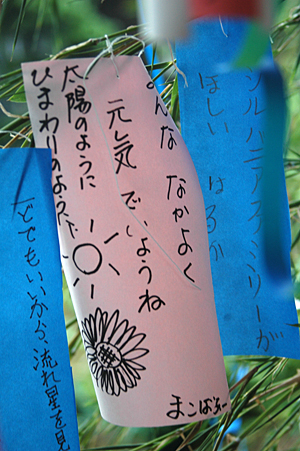 ルバニアファミリーが
ほしい はるか
んな なかよく
元気でいようね
太陽のように
ひまわりのように
1どでもいいから、流れ星を見